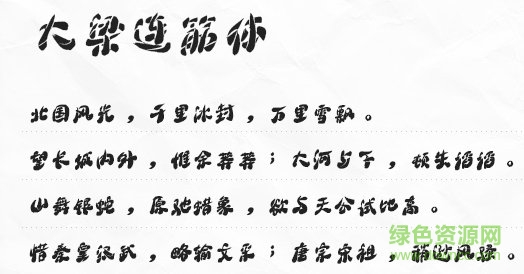 大梁连筋体
北国风光，千里冰封，万里雪飘。
望长城内外，惟余莽莽；大河上下，顿失滔滔。
山舞银蛇，原驰蜡象，欲与天公试比高。
惜秦皇汉武，略输文采；唐宗宋祖，稍逊风骚。
绿色资源网